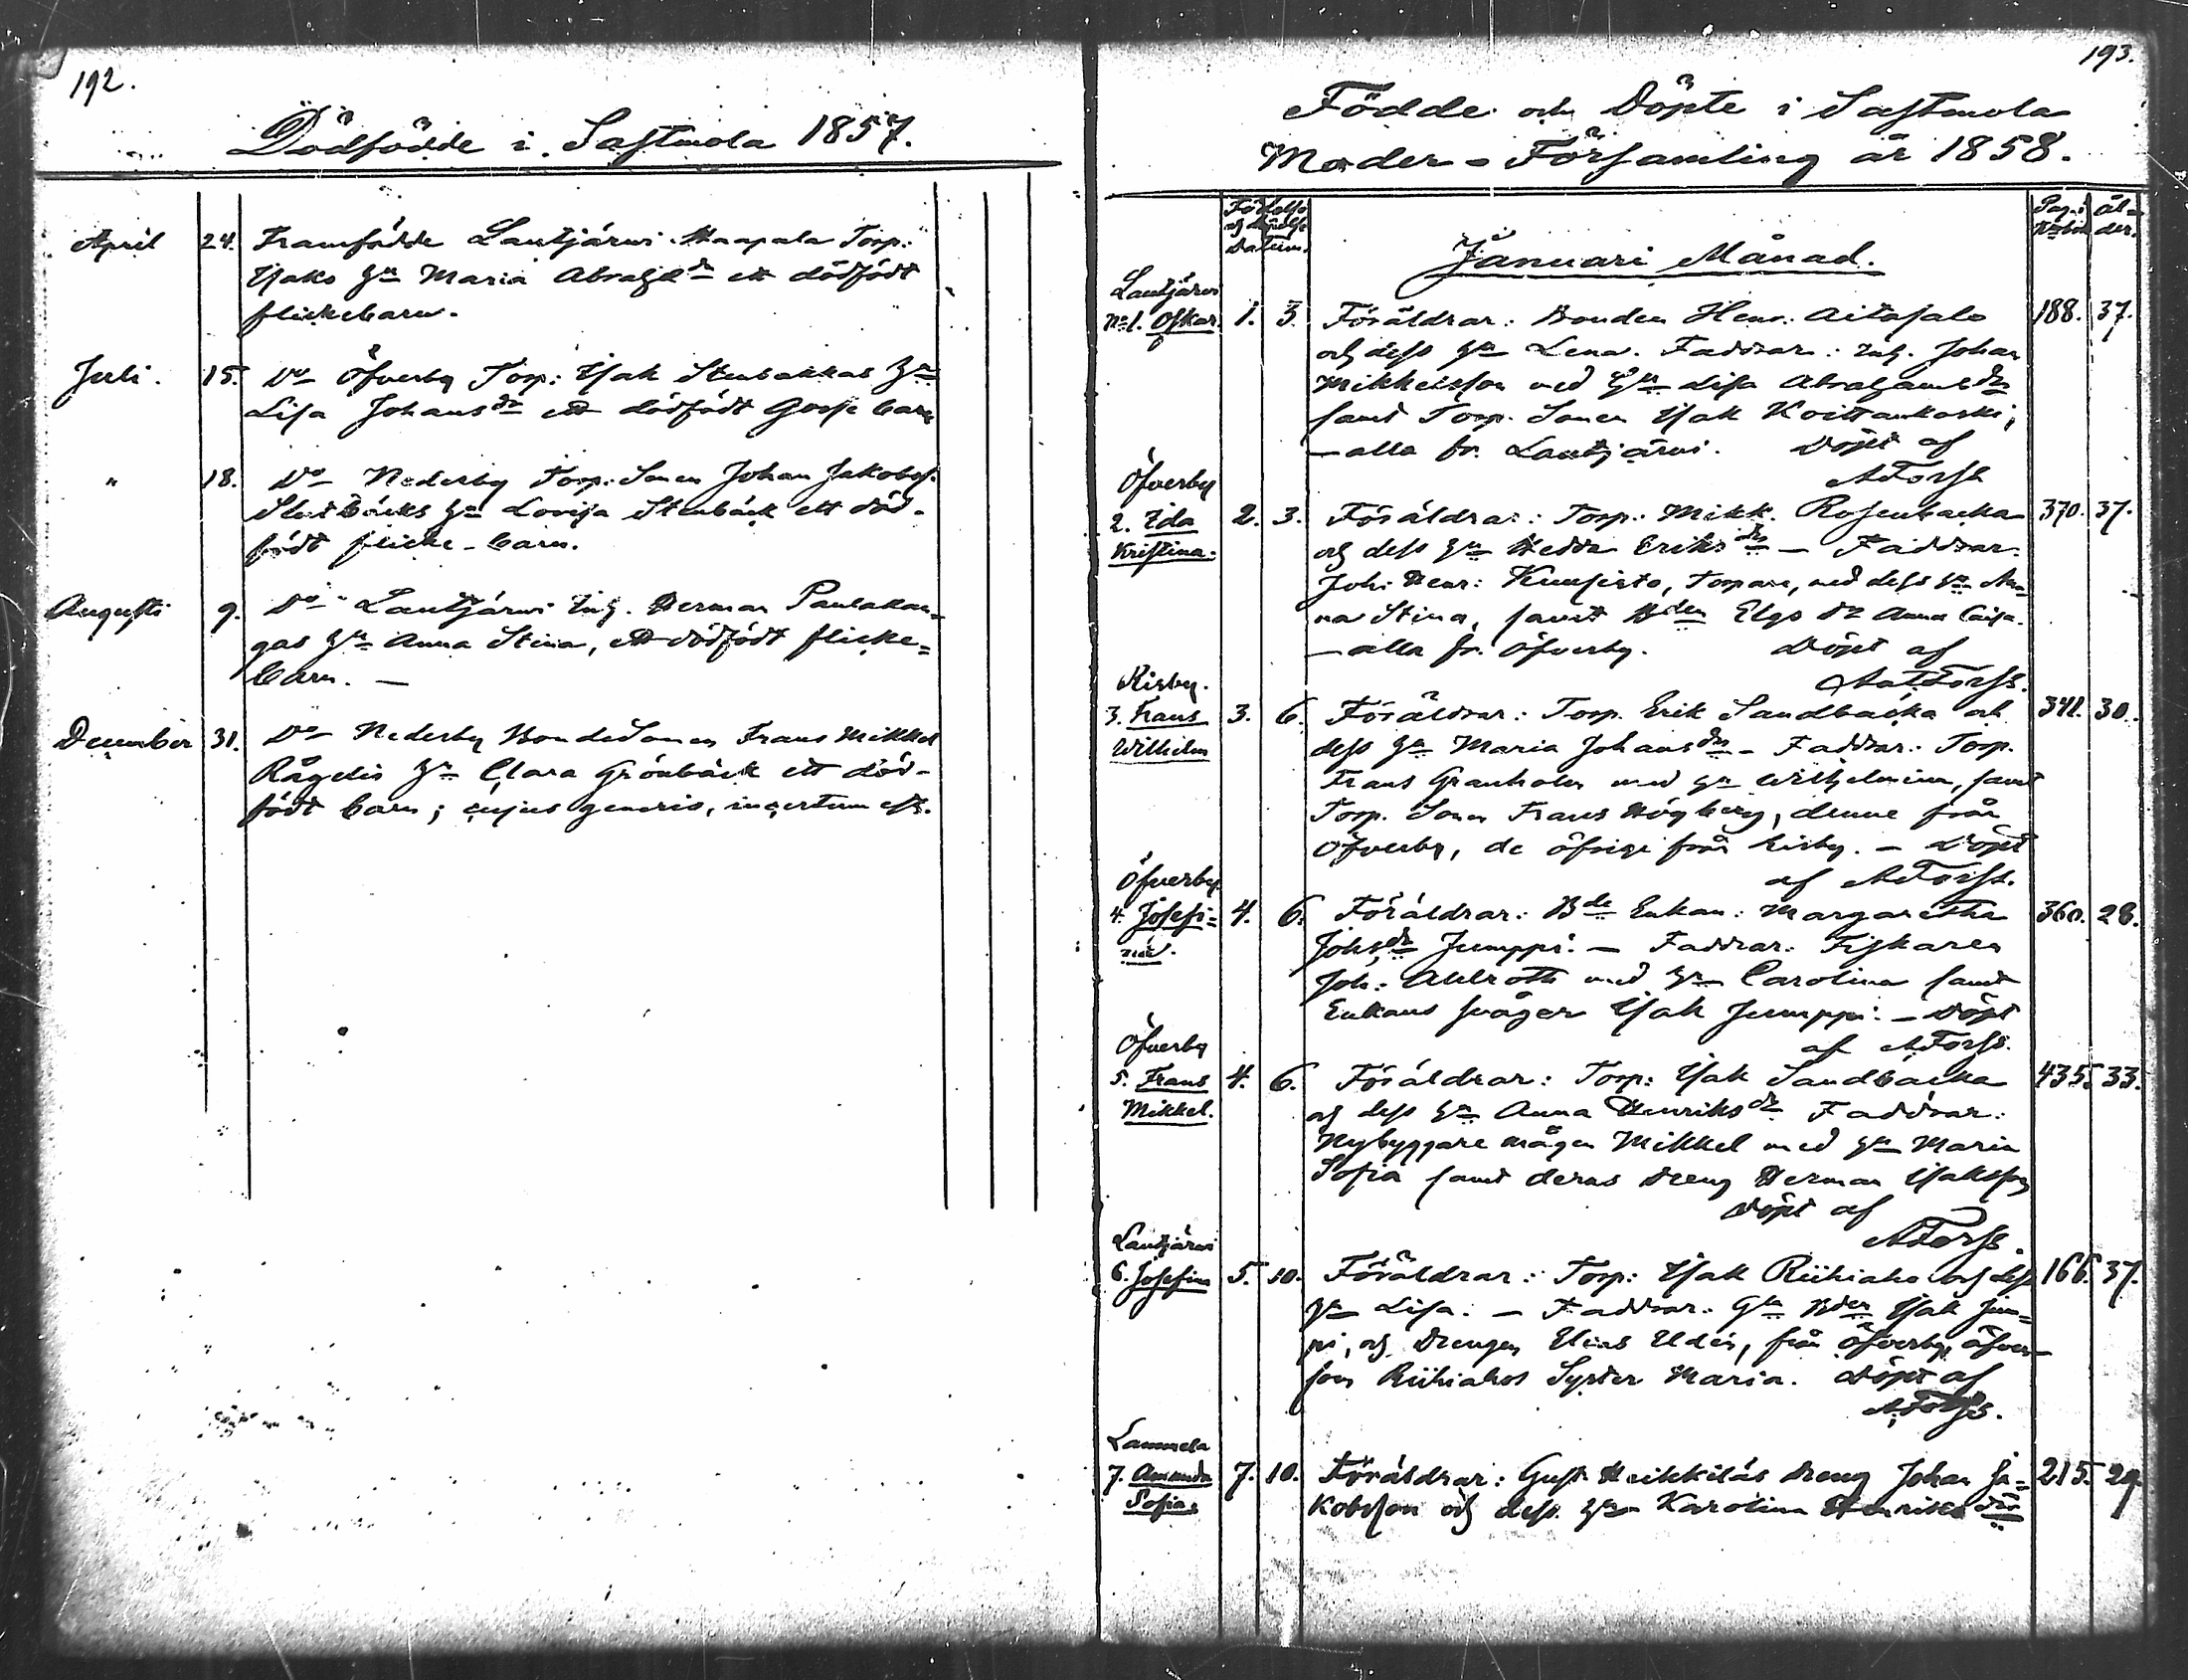 192.
Dödfödde i Sastmola 1857.
April 24. Framfödde Lautjärwi Haapala Torp:
Isaks H:u Maria Abrah:dr ett dödfödt
flickebarn.
Juli. 15. D:o Öfverby Torp: Isak Stenbackas H:u
Lisa Johansdr ett dödfödt Gosse barn
" 18. D:o Nederby Torp: Sonen Johan Jakobss.
Stenbäcks H:u Lovisa Stenbäck ett död-
födt flicke-barn.
Augusti 9. D:o Lautjärwi Inh. Herman Pentakan-
gas H:u Anna Stina, ett dödfödt flicke-
barn. —
December 31. D:o Nederby BondeSonen Frans Mikkel
Rågelis H:u Clara Grönbäck ett död-
födt barn; cujus generis, incertum est.
193.
Födde och Döpte i Sastmola
Moder-Församling år 1858.
Födelse och döpelse Datum. Pag. i Nb. Ål-der.
Januari Månad.
Lautjärwi
No 1. Oskar. 1. 3. Föräldrar: Bonden Henr: Aitasalo 188. 37.
och dess H:u Lena. Faddrar: Inh. Johan
Mikkelsson med H:u Lisa Abrahamsdr
samt Torp. Sonen Isak Koittankoski;
— alla fr. Lautjärwi. Döpt af
AForss
Öfverby
2. Ida 2. 3. Föräldrar: Torp: Mikk. Rosenbacka 370. 37.
Kristina. och dess H:u Hedda Eriksdr — Faddrar:
Joh: Henr: Kuusisto, Torpare, med dess H:u An-
na Stina, samt Bden Elgs Dr Anna Caisa.
— alla fr. Öfverby. Döpt af
AForss.
Kisby.
3. Frans 3. 6. Föräldrar: Torp. Erik Sandbacka och 341. 30.
Wilhelm dess H:u Maria Johansdr — Faddrar: Torp.
Frans Granholm med H:u Wilhelmina, samt
Torp. Sonen Frans Högberg, denne från
Öfverby, de öfrige från Kisby. — Döpt
af AForss.
Öfverby
4. Josefi- 4. 6. Föräldrar: Bde Enkan: Margaretha 360. 28.
na. Johsdr Jumppi. — Faddrar: Fiskaren
Joh: Ahlroth med H:u Carolina samt
Enkans svåger Isak Jumppi. — Döpt
af AForss.
Öfverby
5. Frans 4. 6. Föräldrar: Torp: Isak Sandbacka 435. 33.
Mikkel. och dess H:u Anna Henriksdr Faddrar:
Nybyggare mågen Mikkel med H:u Maria
Sofia samt deras dreng Herman Isaksson
Döpt af
AForss.
Lautjärwi
6. Josefina 5. 10. Föräldrar: Torp: Isak Riihiaho och dess 166. 37.
H:u Lisa. — Faddrar: Gla Bden Isak Jum-
pi, och Drengen Elias Udén, från Öfverby, äfven-
som Riihiahos Syster Maria. Döpt af
AForss.
Lammela
7. Amanda 7. 10. Föräldrar: Gust. Heikkiläs dreng Johan Ja- 215. 29.
Sofia. kobsson och dess H:u Karolina Henriksdr